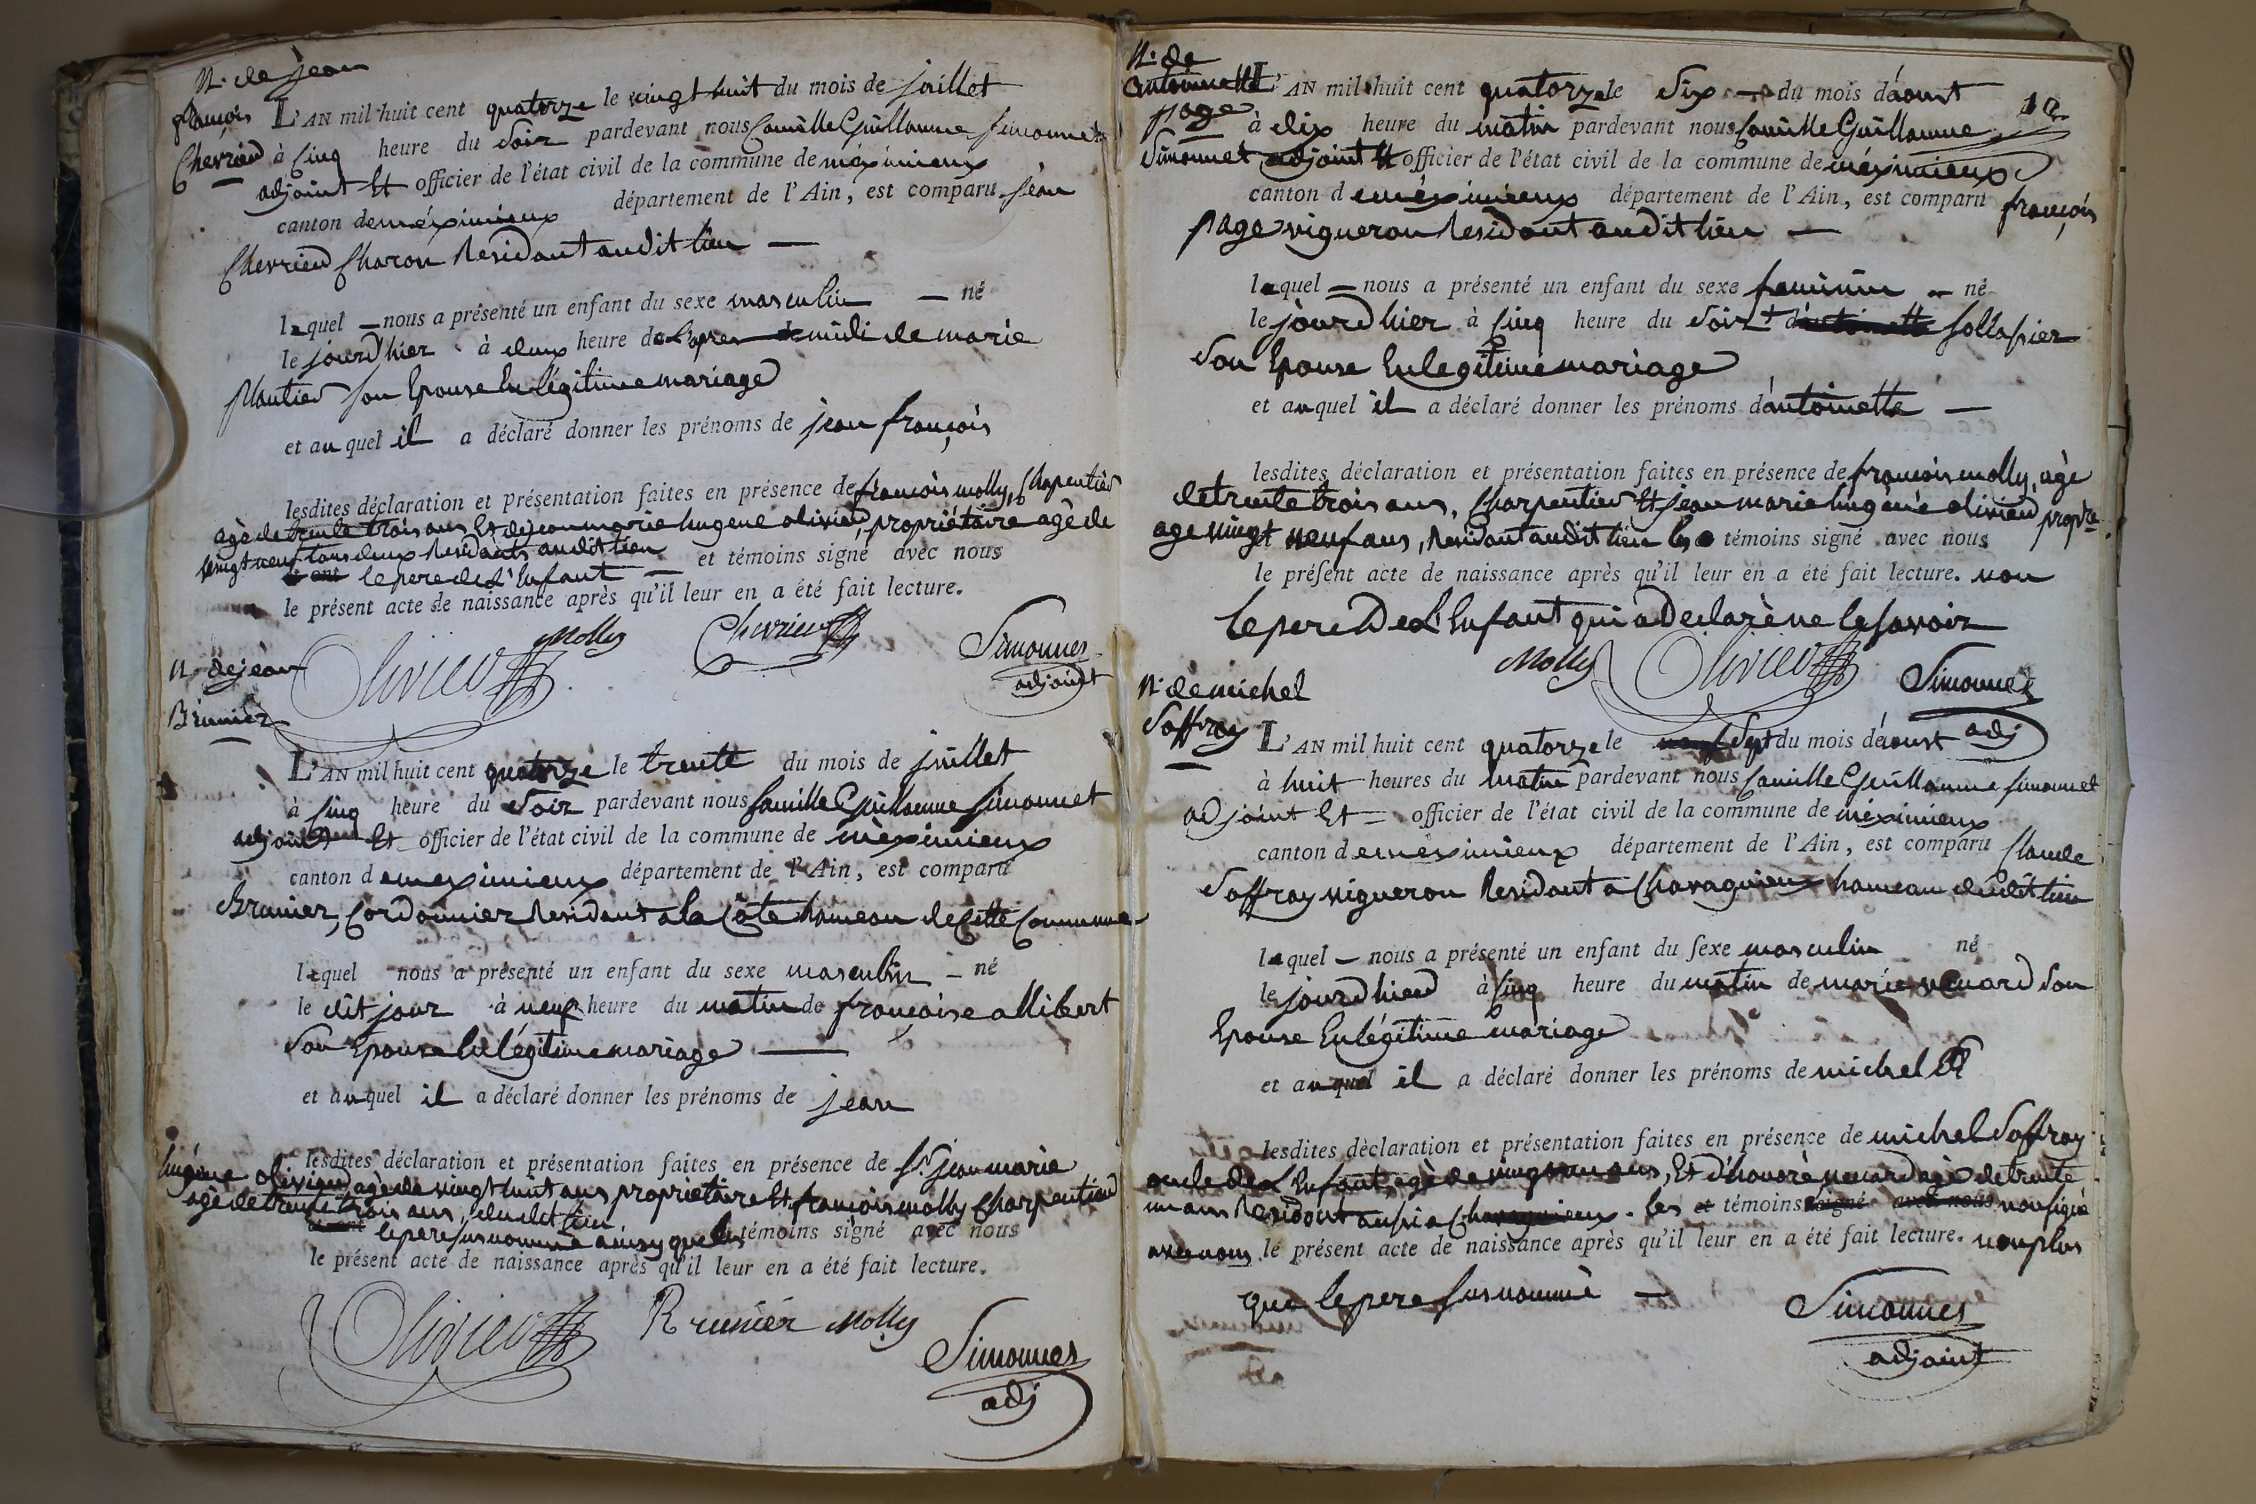 N. de jean
françois
Chevrier
L'AN mil huit cent quatorze le vingt huit du mois de juillet
à cinq heure du soir pardevant nous Camille Guillaume Simonnet
adjoint Et officier de l'état civil de la commune de méximieux
canton de méximieux département de l'Ain, est comparu jean
Chevrier Charon Residant audit lieu —
lequel — nous a présenté un enfant du sexe masculin — né
le jourd'hier à deux heure de l'apres midi de marie
plantier son Epouse En légitime mariage
et auquel il a déclaré donner les prénoms de jean françois
lesdites déclaration et présentation faites en présence de françois molly, Charpentier
agè de trente trois ans Et de jean marie Eugene olivier, propriétaire agè de
vingt neuf tous deux Residants audit lieu et témoins signé avec nous
le pere de L'Enfant —
le présent acte de naissance après qu'il leur en a été fait lecture.
Olivier Molly Chevrier Simonnet
adjoint
N. de jean
Brunier
L'AN mil huit cent quatorze le trente du mois de juillet
à cinq heure du soir pardevant nous Camille Guillaume Simonnet
adjoint Et officier de l'état civil de la commune de méximieux
canton de meximieux département de l'Ain, est comparu
Brunier, Cordonnier Residant a la Côte hameau de Cette Commune
lequel nous a présenté un enfant du sexe masculin — né
le dit jour à neuf heure du matin de françoise allibert
son Epouse En légitime mariage —
et auquel il a déclaré donner les prénoms de jean
lesdites déclaration et présentation faites en présence de Sr. jean marie
Eugène olivier agè de vingt huit ans propriétaire Et françois molly Charpentier
agè de trente trois ans, dudit lieu
le pere susnommé ainsy que les témoins signé avec nous
le présent acte de naissance après qu'il leur en a été fait lecture.
Olivier Brunier Molly Simonnet
adj
N. de
antoinette
page
L'AN mil huit cent quatorze le six — du mois d'aoust
12
à dix heure du matin pardevant nous Camille Guillaume
Simonnet, adjoint Et officier de l'état civil de la commune de méximieux
canton de méximieux département de l'Ain, est comparu françois
page vigneron Residant audit lieu —
lequel — nous a présenté un enfant du sexe feminin — né
le jourd'hier à cinq heure du soir d'antoinette
son Epouse En legitime mariage
et auquel il a déclaré donner les prénoms d'antoinette —
lesdites déclaration et présentation faites en présence de françois molly, agè
de trente trois ans, Charpentier Et jean marie Eugène olivier propre.
age vingt neuf ans, Residant audit lieu les témoins signé avec nous
le présent acte de naissance après qu'il leur en a été fait lecture. non
le pere De L'Enfant qui a Declarè ne le savoir
Molly Olivier Simonnet
adj
N. de michel
Soffray
L'AN mil huit cent quatorze le sept du mois d'aoust
à huit heures du matin pardevant nous Camille Guillaume Simonnet
adjoint Et officier de l'état civil de la commune de méximieux
canton de meximieux département de l'Ain, est comparu Claude
Soffray vigneron Residant a Chavagnieux hameau dudit lieu
lequel — nous a présenté un enfant du sexe masculin né
le jourd'hier à cinq heure du matin de marie renard son
Epouse En légitime mariage
et auquel il a déclaré donner les prénoms de michel
lesdites dèclaration et présentation faites en présence de michel Soffray
oncle de L'Enfant, agè de ans, Et d'honorè renard agè de trente
un ans Residant aussi a Chavagnieux. les et témoins signé avec nous non signé
avec nous le présent acte de naissance après qu'il leur en a été fait lecture. non plus
que le pere susnommè —
Simonnet
adjoint